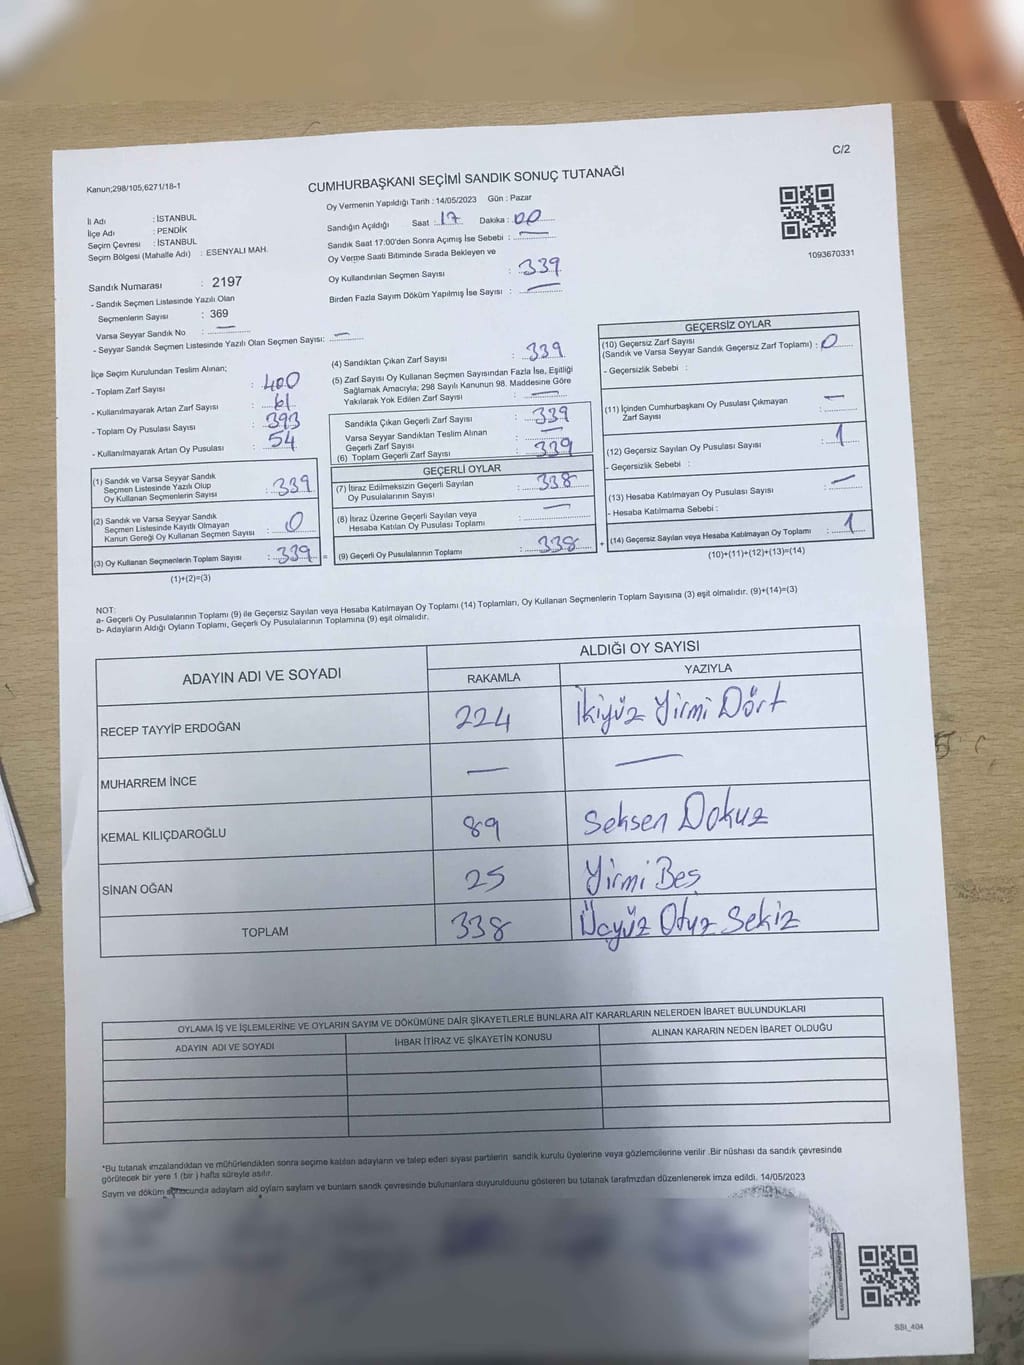 C/2
Kanun;298/105,6271/18-1
CUMHURBAŞKANI SEÇİMİ SANDIK SONUÇ TUTANAĞI
İl Adı : İSTANBUL
İlçe Adı : PENDİK
Seçim Çevresi : İSTANBUL
Seçim Bölgesi (Mahalle Adı) : ESENYALI MAH.
Oy Vermenin Yapıldığı Tarih : 14/05/2023 Gün : Pazar
Sandığın Açıldığı Saat : 17 Dakika : 00
Sandık Saat 17:00'den Sonra Açımış İse Sebebi : —
Oy Verme Saati Bitiminde Sırada Bekleyen ve
Oy Kullandırılan Seçmen Sayısı : 339
Birden Fazla Sayım Döküm Yapılmış İse Sayısı : —
1093670331
Sandık Numarası : 2197
- Sandık Seçmen Listesinde Yazılı Olan
Seçmenlerin Sayısı : 369
Varsa Seyyar Sandık No : —
- Seyyar Sandık Seçmen Listesinde Yazılı Olan Seçmen Sayısı: —
İlçe Seçim Kurulundan Teslim Alınan;
- Toplam Zarf Sayısı : 400
- Kullanılmayarak Artan Zarf Sayısı : 61
- Toplam Oy Pusulası Sayısı : 393
- Kullanılmayarak Artan Oy Pusulası : 54
(1) Sandık ve Varsa Seyyar Sandık
Seçmen Listesinde Yazılı Olup
Oy Kullanan Seçmenlerin Sayısı : 339
(2) Sandık ve Varsa Seyyar Sandık
Seçmen Listesinde Kayıtlı Olmayan
Kanun Gereği Oy Kullanan Seçmen Sayısı : 0
(3) Oy Kullanan Seçmenlerin Toplam Sayısı : 339 =
(1)+(2)=(3)
(4) Sandıktan Çıkan Zarf Sayısı : 339
(5) Zarf Sayısı Oy Kullanan Seçmen Sayısından Fazla İse, Eşitliği
Sağlamak Amacıyla; 298 Sayılı Kanunun 98. Maddesine Göre
Yakılarak Yok Edilen Zarf Sayısı : —
Sandıkta Çıkan Geçerli Zarf Sayısı : 339
Varsa Seyyar Sandıktan Teslim Alınan
Geçerli Zarf Sayısı : —
(6) Toplam Geçerli Zarf Sayısı : 339
GEÇERLİ OYLAR
(7) İtiraz Edilmeksizin Geçerli Sayılan
Oy Pusulalarının Sayısı : 338
(8) İtiraz Üzerine Geçerli Sayılan veya
Hesaba Katılan Oy Pusulası Toplamı : —
(9) Geçerli Oy Pusulalarının Toplamı : 338 +
GEÇERSİZ OYLAR
(10) Geçersiz Zarf Sayısı
(Sandık ve Varsa Seyyar Sandık Geçersiz Zarf Toplamı) : 0
- Geçersizlik Sebebi :
(11) İçinden Cumhurbaşkanı Oy Pusulası Çıkmayan
Zarf Sayısı : —
(12) Geçersiz Sayılan Oy Pusulası Sayısı : 1
- Geçersizlik Sebebi :
(13) Hesaba Katılmayan Oy Pusulası Sayısı : —
- Hesaba Katılmama Sebebi :
(14) Geçersiz Sayılan veya Hesaba Katılmayan Oy Toplamı : 1
(10)+(11)+(12)+(13)=(14)
NOT:
a- Geçerli Oy Pusulalarının Toplamı (9) ile Geçersiz Sayılan veya Hesaba Katılmayan Oy Toplamı (14) Toplamları, Oy Kullanan Seçmenlerin Toplam Sayısına (3) eşit olmalıdır. (9)+(14)=(3)
b- Adayların Aldığı Oyların Toplamı, Geçerli Oy Pusulalarının Toplamına (9) eşit olmalıdır.
ADAYIN ADI VE SOYADI ALDIĞI OY SAYISI
RAKAMLA YAZIYLA
RECEP TAYYİP ERDOĞAN 224 İkiyüz Yirmi Dört
MUHARREM İNCE — —
KEMAL KILIÇDAROĞLU 89 Seksen Dokuz
SİNAN OĞAN 25 Yirmi Beş
TOPLAM 338 Üçyüz Otuz Sekiz
OYLAMA İŞ VE İŞLEMLERİNE VE OYLARIN SAYIM VE DÖKÜMÜNE DAİR ŞİKAYETLERLE BUNLARA AİT KARARLARIN NELERDEN İBARET BULUNDUKLARI
ADAYIN ADI VE SOYADI İHBAR İTİRAZ VE ŞİKAYETİN KONUSU ALINAN KARARIN NEDEN İBARET OLDUĞU
*Bu tutanak imzalandıktan ve mühürlendikten sonra seçime katılan adayların ve talep eden siyasi partilerin sandık kurulu üyelerine veya gözlemcilerine verilir .Bir nüshası da sandık çevresinde
görülecek bir yere 1 (bir ) hafta süreyle asılır.
Sayım ve döküm sonucunda adayların aldığı oyların sayıları ve bunların sandık çevresinde bulunanlara duyurulduğunu gösteren bu tutanak tarafımızdan düzenlenerek imza edildi. 14/05/2023
SSI_404